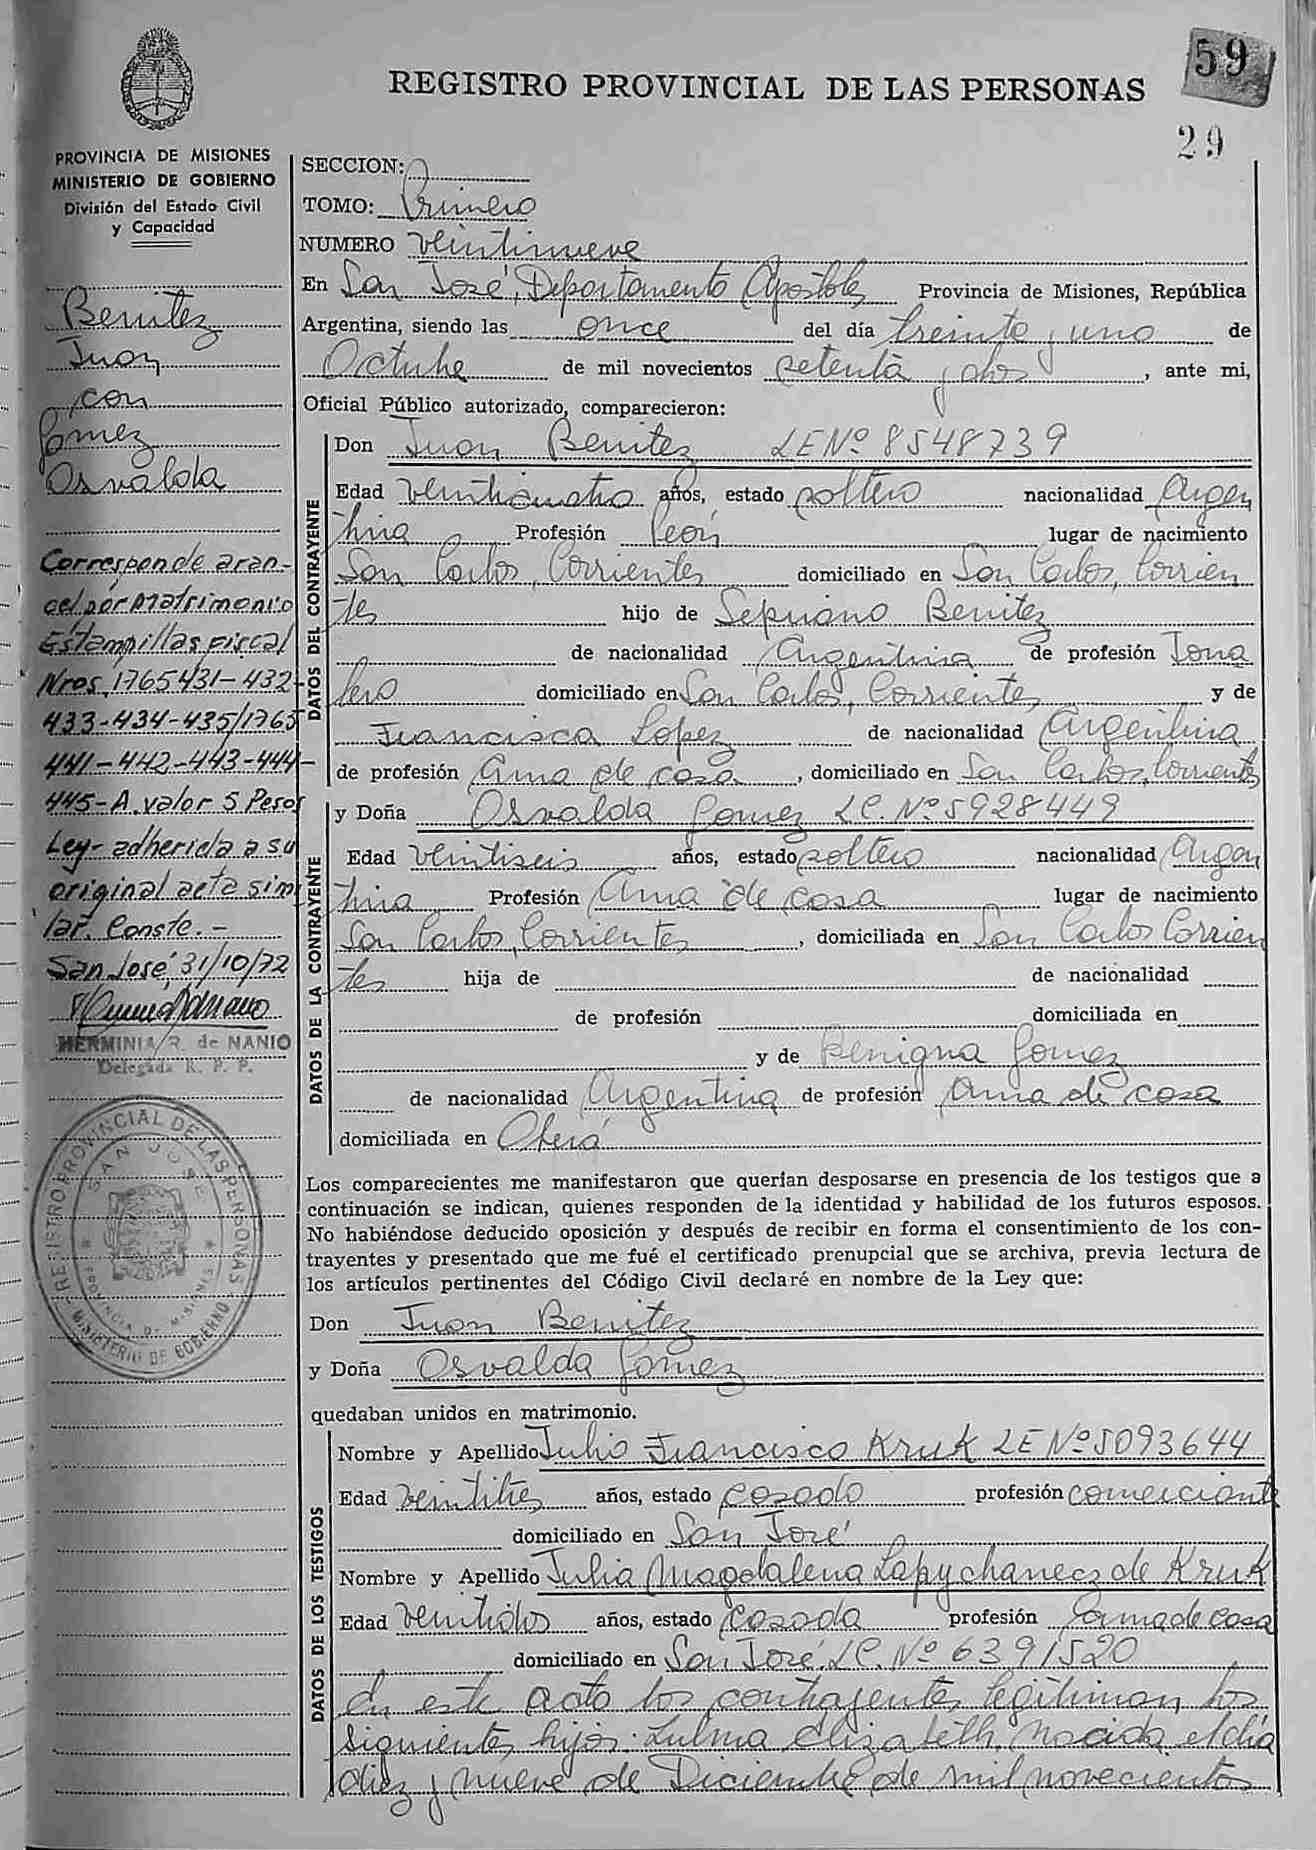 59
REGISTRO PROVINCIAL DE LAS PERSONAS
29
PROVINCIA DE MISIONES
MINISTERIO DE GOBIERNO
División del Estado Civil
y Capacidad
Benitez
Juan
con
Gomez
Osvalda
Corresponde aran-
cel por Matrimonio
Estampillas Fiscal
Nros, 1765431-432-
433-434-435/1765
441-442-443-444-
445-A. valor 5 Pesos
Ley- adherida a su
original acta simi
lar. Conste.-
San José, 31/10/72
HERMINIA R. de NANIO
Delegada R. P. P.
REGISTRO PROVINCIAL DE LAS PERSONAS
SAN JOSE
PROVINCIA DE MISIONES
MINISTERIO DE GOBIERNO
SECCION:
TOMO: Primero
NUMERO Veintinueve
En San José, Departamento Apóstoles Provincia de Misiones, República
Argentina, siendo las once del día treinta y uno de
Octubre de mil novecientos setenta y dos, ante mi,
Oficial Público autorizado, comparecieron:
DATOS DEL CONTRAYENTE
Don Juan Benitez LE Nº 8548739
Edad Veinticuatro años, estado soltero nacionalidad Argen
tina Profesión Peón lugar de nacimiento
San Carlos, Corrientes domiciliado en San Carlos, Corrien
tes hijo de Sepriano Benitez
de nacionalidad Argentina de profesión Jorna
lero domiciliado en San Carlos, Corrientes y de
Francisca Lopez de nacionalidad Argentina
de profesión Ama de casa, domiciliado en San Carlos, Corrientes
DATOS DE LA CONTRAYENTE
y Doña Osvalda Gomez LC. Nº 5928449
Edad Veintiseis años, estado soltero nacionalidad Argen
tina Profesión Ama de casa lugar de nacimiento
San Carlos, Corrientes, domiciliada en San Carlos Corrien
tes hija de de nacionalidad
de profesión domiciliada en
y de Benigna Gomez
de nacionalidad Argentina de profesión Ama de casa
domiciliada en Oberá
Los comparecientes me manifestaron que querían desposarse en presencia de los testigos que a
continuación se indican, quienes responden de la identidad y habilidad de los futuros esposos.
No habiéndose deducido oposición y después de recibir en forma el consentimiento de los con-
trayentes y presentado que me fué el certificado prenupcial que se archiva, previa lectura de
los artículos pertinentes del Código Civil declaré en nombre de la Ley que:
Don Juan Benitez
y Doña Osvalda Gomez
quedaban unidos en matrimonio.
DATOS DE LOS TESTIGOS
Nombre y Apellido Julio Francisco Kruk LE Nº 5093644
Edad Veintitres años, estado casado profesión comerciante
domiciliado en San José
Nombre y Apellido Julia Magdalena Lapychanecz de Kruk
Edad Veintidos años, estado casada profesión ama de casa
domiciliado en San José. LC. Nº 6391520
En este acto los contrayentes legitiman los
siguientes hijos: Zulma Elizabeth, nacida el día
diez y nueve de Diciembre de mil novecientos